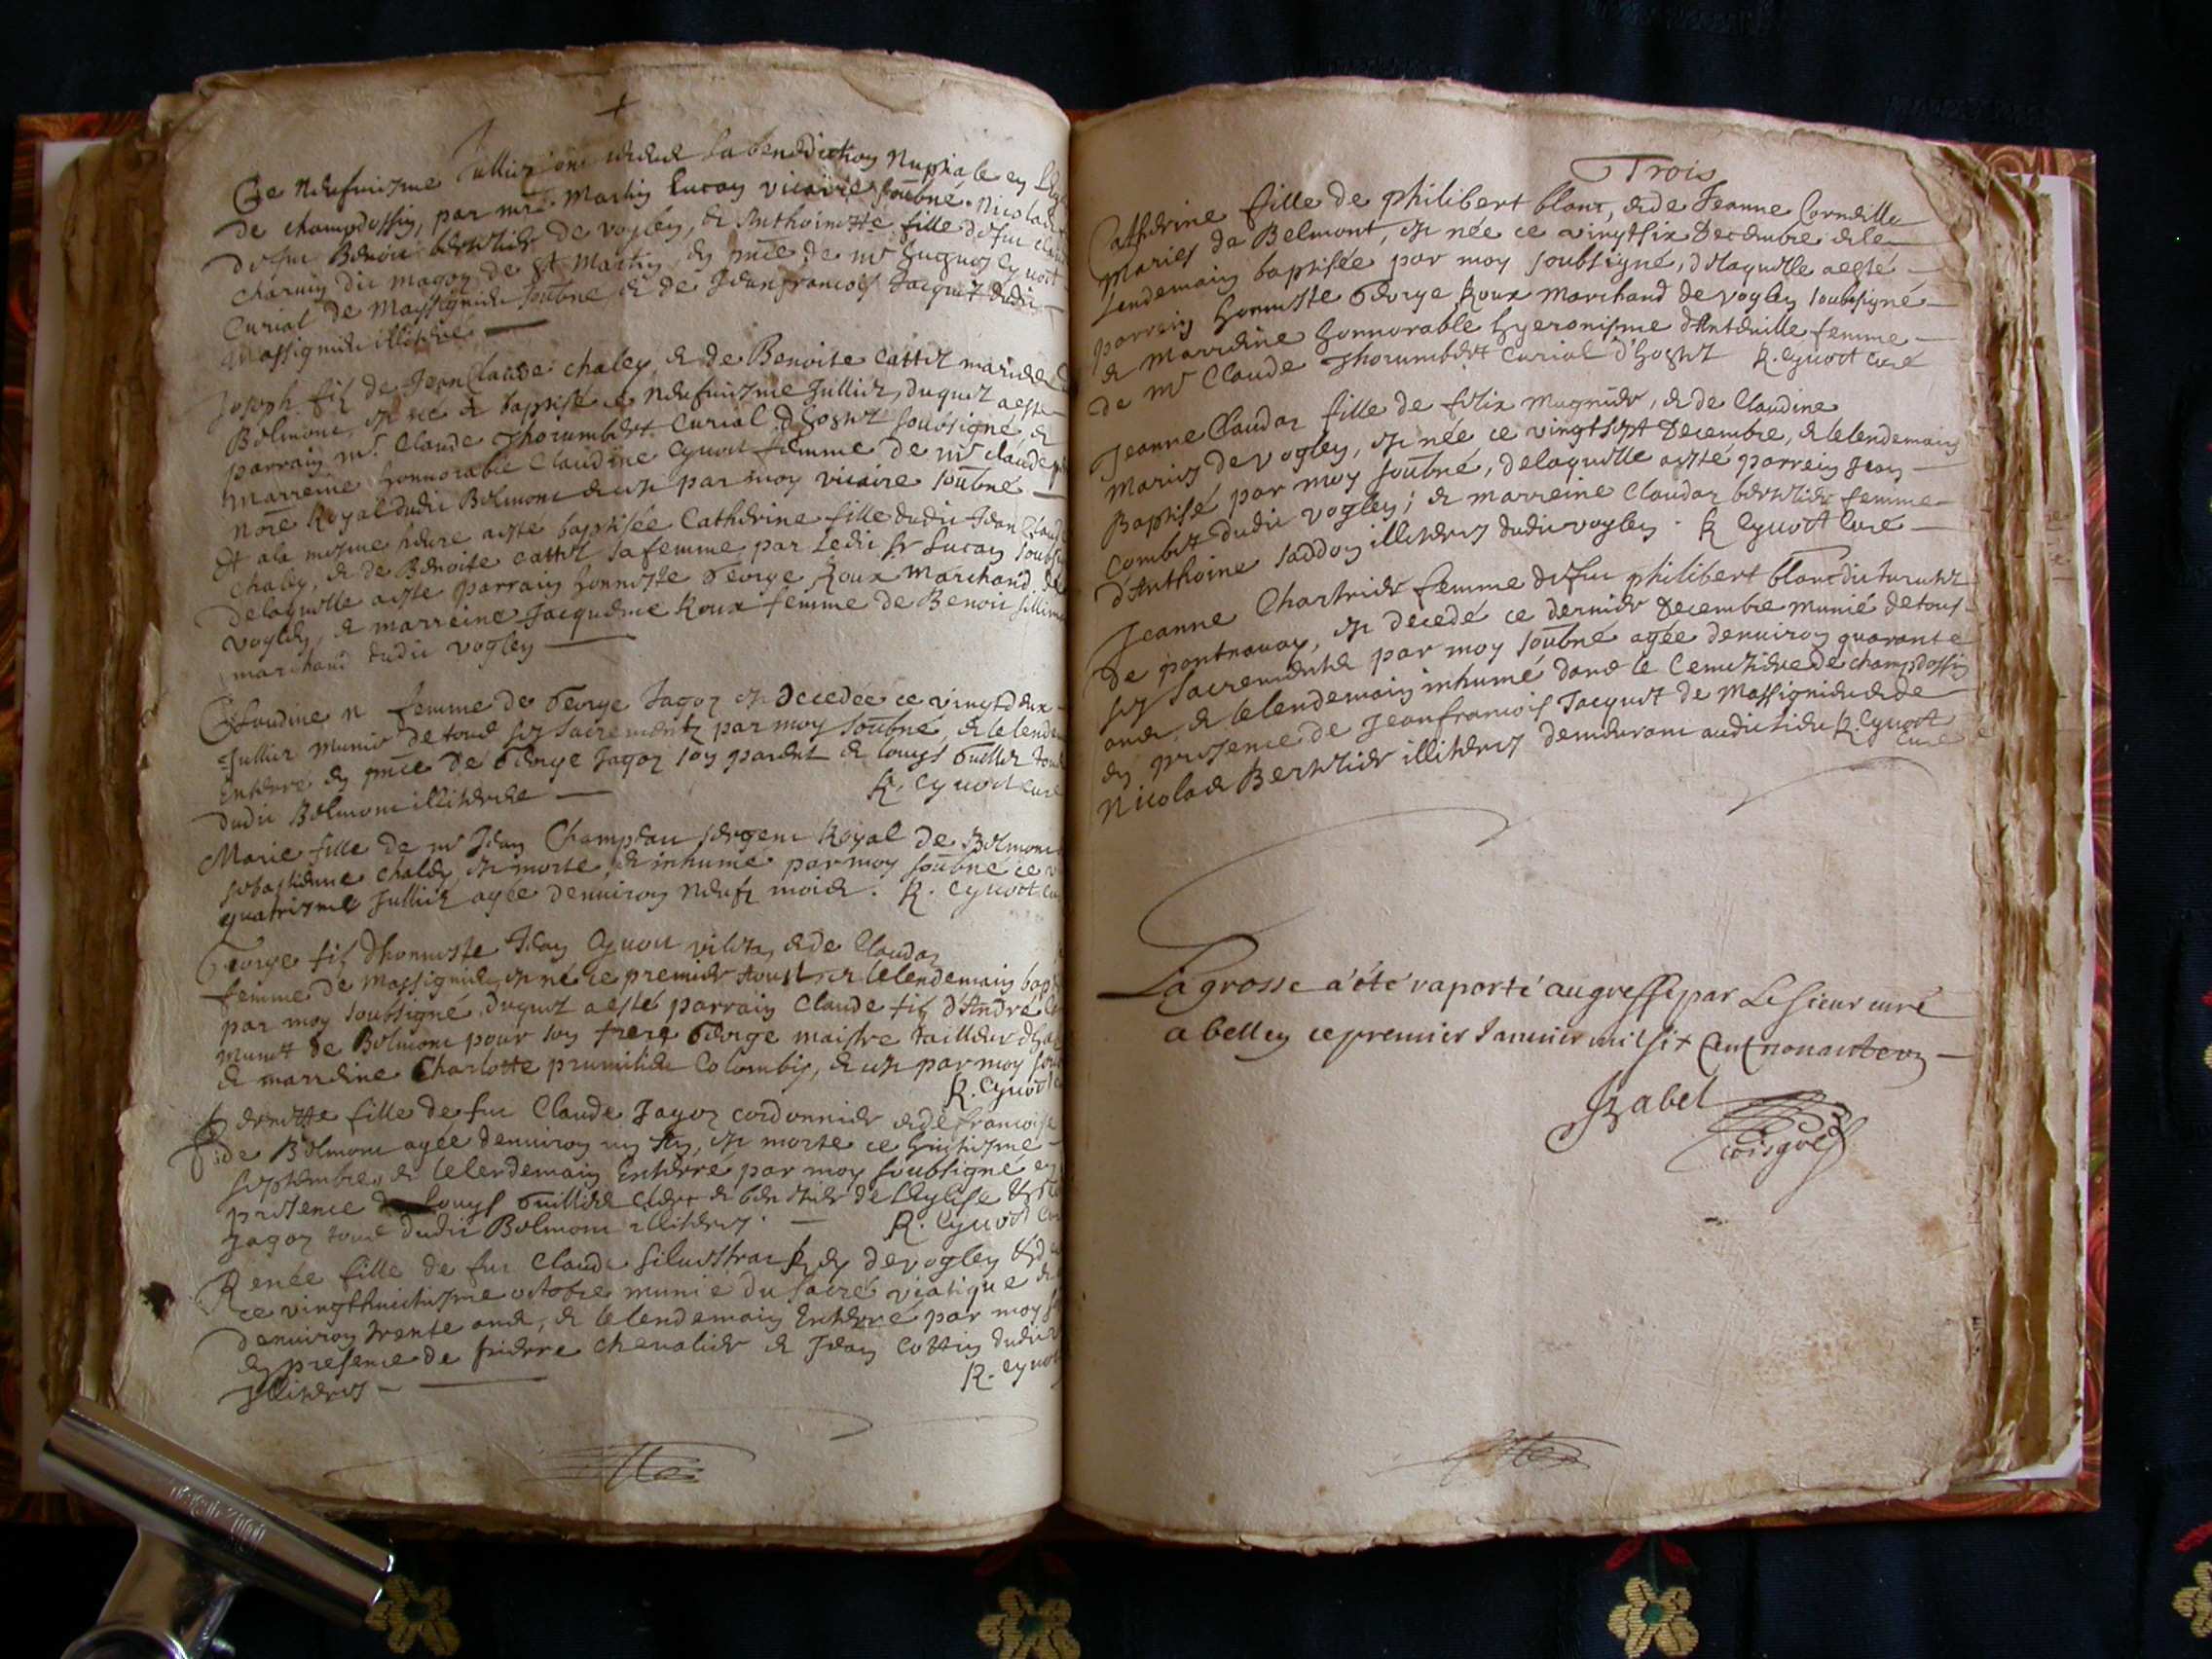 Ce neufuiesme Jullier ont receu la benediction Nuptiale en
de champdossin, par mre. Martin Lucay vicaire soubné. Nicolas
defeu Benoit berthier de vogley, & Anthoinette fille defeu
charuin dit magoz de St Martin en pnce de mr Cyuoct
Curial de Massignieu soubné & de Jeanfrancois Jacquet dudit
Massignieu illiteré
Joseph fils de Jean Claude chaley & de Benoite Cattet mariés
Belmont, est né & baptisé ce neufuiesme Jullier, duquel a esté
parrain mr. Claude Thorumbert Curial d'hostel soubsigné, &
marreine honnorable Claudine Cyuoct femme de mr claude
nore Royal dudit Belmont & ce par moy vicaire soubné
Et ala mesme heure a esté baptisée Catherine fille dudit Jean Claude
Chaley, & de Benoite Cattet sa femme par Ledit sr Lucay
delaquelle a esté parrain honneste George Roux marchand de
vogley, & marreine Jacqueme Roux femme de Benoit
marchand dudit vogley
Claudine n femme de George Jagoz est decedée ce vingtdeux
Jullier munie de tous ses sacrements par moy soubné, & lelendemain
Enterré en pnce de George Jagoz son parent & Louys Guillet tous
dudit Belmont illiterés R. Cyuoct Curé
Marie fille de mr Jean Champeau sergent Royal de Belmont
sebastienne chaley est morte, & inhumé par moy soubné ce
quatriesme Jullier agée denuiron neuf mois. R. Cyuoct
George fils d'honneste Jean Cyuoct & de Claudaz
femme de Massignieu est né ce premier Aoust & lelendemain
par moy soubsigné, duquel a esté parrain Claude fils d'André
de Belmont pour son frere George maistre tailleur
& marreine Charlotte prumilieu Colombin, & ce par moy
R. Cyuoct
Pernette fille de feu Claude Jagoz cordonnier & de francoise
de Belmont agée denuiron un An, est morte ce huictiesme
septembre & lelendemain Enterré par moy soubsigné en
presence de Louys Guillet clerc & de l'Eglise &
Jagoz tous dudit Belmont illiterés. R. Cyuoct
Renée fille de feu Claude siluestraz de vogley
ce vingthuictiesme octobre munie du sacré viatique
denuiron trente ans, & lelendemain Enterré par moy
en presence de pierre cheualier & Jean Cottin dudit
Illiterés R. Cyuoct
Trois
Catherine fille de philibert blanc, & de Jeanne Corneille
mariés de Belmont, est née ce vingtsix Decembre & le
lendemain baptisée par moy soubsigné, delaquelle a esté
parrein honneste George Roux marchand de vogley soubsigné
& marreine honnorable hyeronisme d'Anteuille femme
de mr Claude Thorumbert Curial d'hostel R. Cyuoct Curé
Jeanne Claudaz fille de felix Mugnier, & de Claudine
mariés de vogley, est née ce vingtsept Decembre, & lelendemain
Baptisé par moy soubné, delaquelle a esté parrein Jean
Combet dudit vogley; & marreine Claudaz berthier femme
d'Anthoine Jaddoy illiterés dudit vogley. R Cyuoct Curé
Jeanne Chartrier femme defeu philibert blanc dit
de pontnouaz, est decedé ce dernier Decembre munie de tous
ses sacrements par moy soubné agée denuiron quarante
ans, & lelendemain inhumé dans le Cemetiere de champdossin
en presence de Jeanfrancois Jacquet de Massignieu & de
Nicolas Berthier illiterés demeurant audit lieu R. Cyuoct
Curé
La grosse a été raporté au greffe par Le sieur curé
a belley ce premier Januier mil six cent nonante
Jzabel